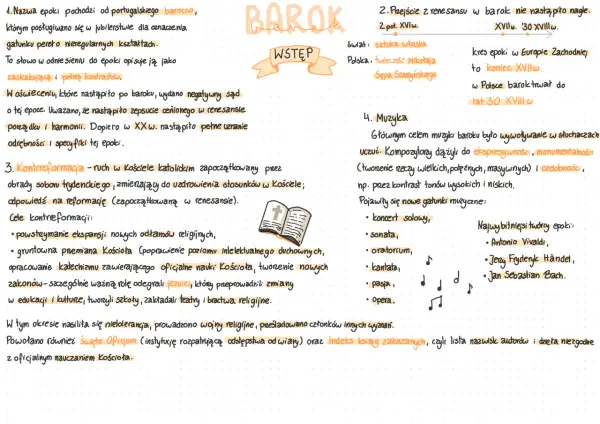 BAROK
WSTĘP
1. Nazwa epoki pochodzi od portugalskiego barocco,
którym posługiwano się w jubilerstwie dla oznaczenia
gatunku pereł o nieregularnych kształtach.
To słowo w odniesieniu do epoki opisuje ją jako
zaskakującą i pełną kontrastów.
W oświeceniu, które nastąpiło po baroku, wydano negatywny sąd
o tej epoce. Uważano, że nastąpiło zepsucie cenionego w renesansie
porządku i harmonii. Dopiero w XX w. nastąpiło pełne uznanie
odrębności i specyfiki tej epoki.
2. Przejście z renesansu w barok nie nastąpiło nagle.
2. poł. XVI w. XVII w. '30 XVIII w.
Świat: sztuka włoska
Polska: twórczość Mikołaja
Sępa Szarzyńskiego
kres epoki w Europie Zachodniej
to koniec XVII w.
w Polsce barok trwał do
lat 30. XVIII w.
3. Kontrreformacja - ruch w Kościele katolickim zapoczątkowany przez
obrady soboru trydenckiego, zmierzający do uzdrowienia stosunków w Kościele;
odpowiedź na reformację (zapoczątkowaną w renesansie).
Cele kontrreformacji:
• powstrzymanie ekspansji nowych odłamów religijnych,
• gruntowna przemiana Kościoła (poprawienie poziomu intelektualnego duchownych,
opracowanie katechizmu zawierającego oficjalne nauki Kościoła, tworzenie nowych
zakonów - szczególnie ważną rolę odegrali jezuici, którzy przeprowadzili zmiany
w edukacji i kulturze, tworzyli szkoły, zakładali teatry i bractwa religijne.
W tym okresie nasiliła się nietolerancja, prowadzono wojny religijne, prześladowano członków innych wyznań.
Powołano również Święte Oficjum (instytucję rozpatrującą odstępstwa od wiary) oraz Indeks ksiąg zakazanych, czyli lista nazwisk autorów i dzieła niezgodne
z oficjalnym nauczaniem Kościoła.
4. Muzyka
Głównym celem muzyki baroku było wywoływanie w słuchaczach
uczuć. Kompozytorzy dążyli do ekspresywności, monumentalności
(tworzenie rzeczy wielkich, potężnych, masywnych) i ozdobności,
np. przez kontrast tonów wysokich i niskich.
Pojawiły się nowe gatunki muzyczne:
• koncert solowy,
• sonata,
• oratorium,
• kantata,
• pasja,
• opera.
Najwybitniejsi twórcy epoki:
• Antonio Vivaldi,
• Jerzy Fryderyk Händel,
• Jan Sebastian Bach.